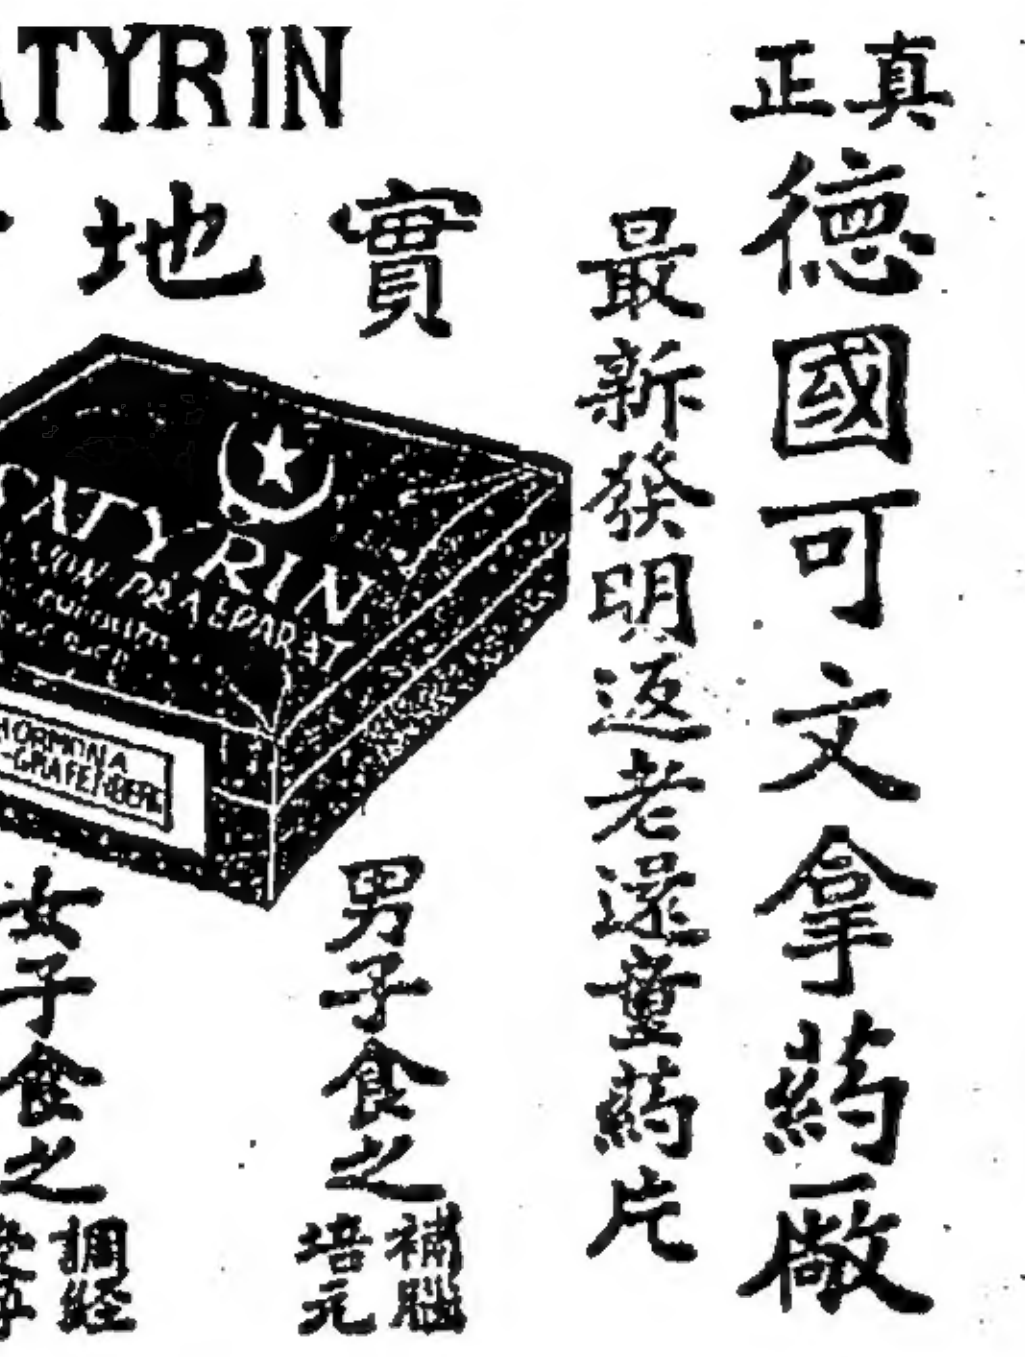 真正
德國可文拿葯廠
最新發明返老還童葯片
TYRIN
實地
SATYRIN
PRAEPARAT
HORMONA
GRAFENBERG
男子食之
補腦
培元
女子食之
調經